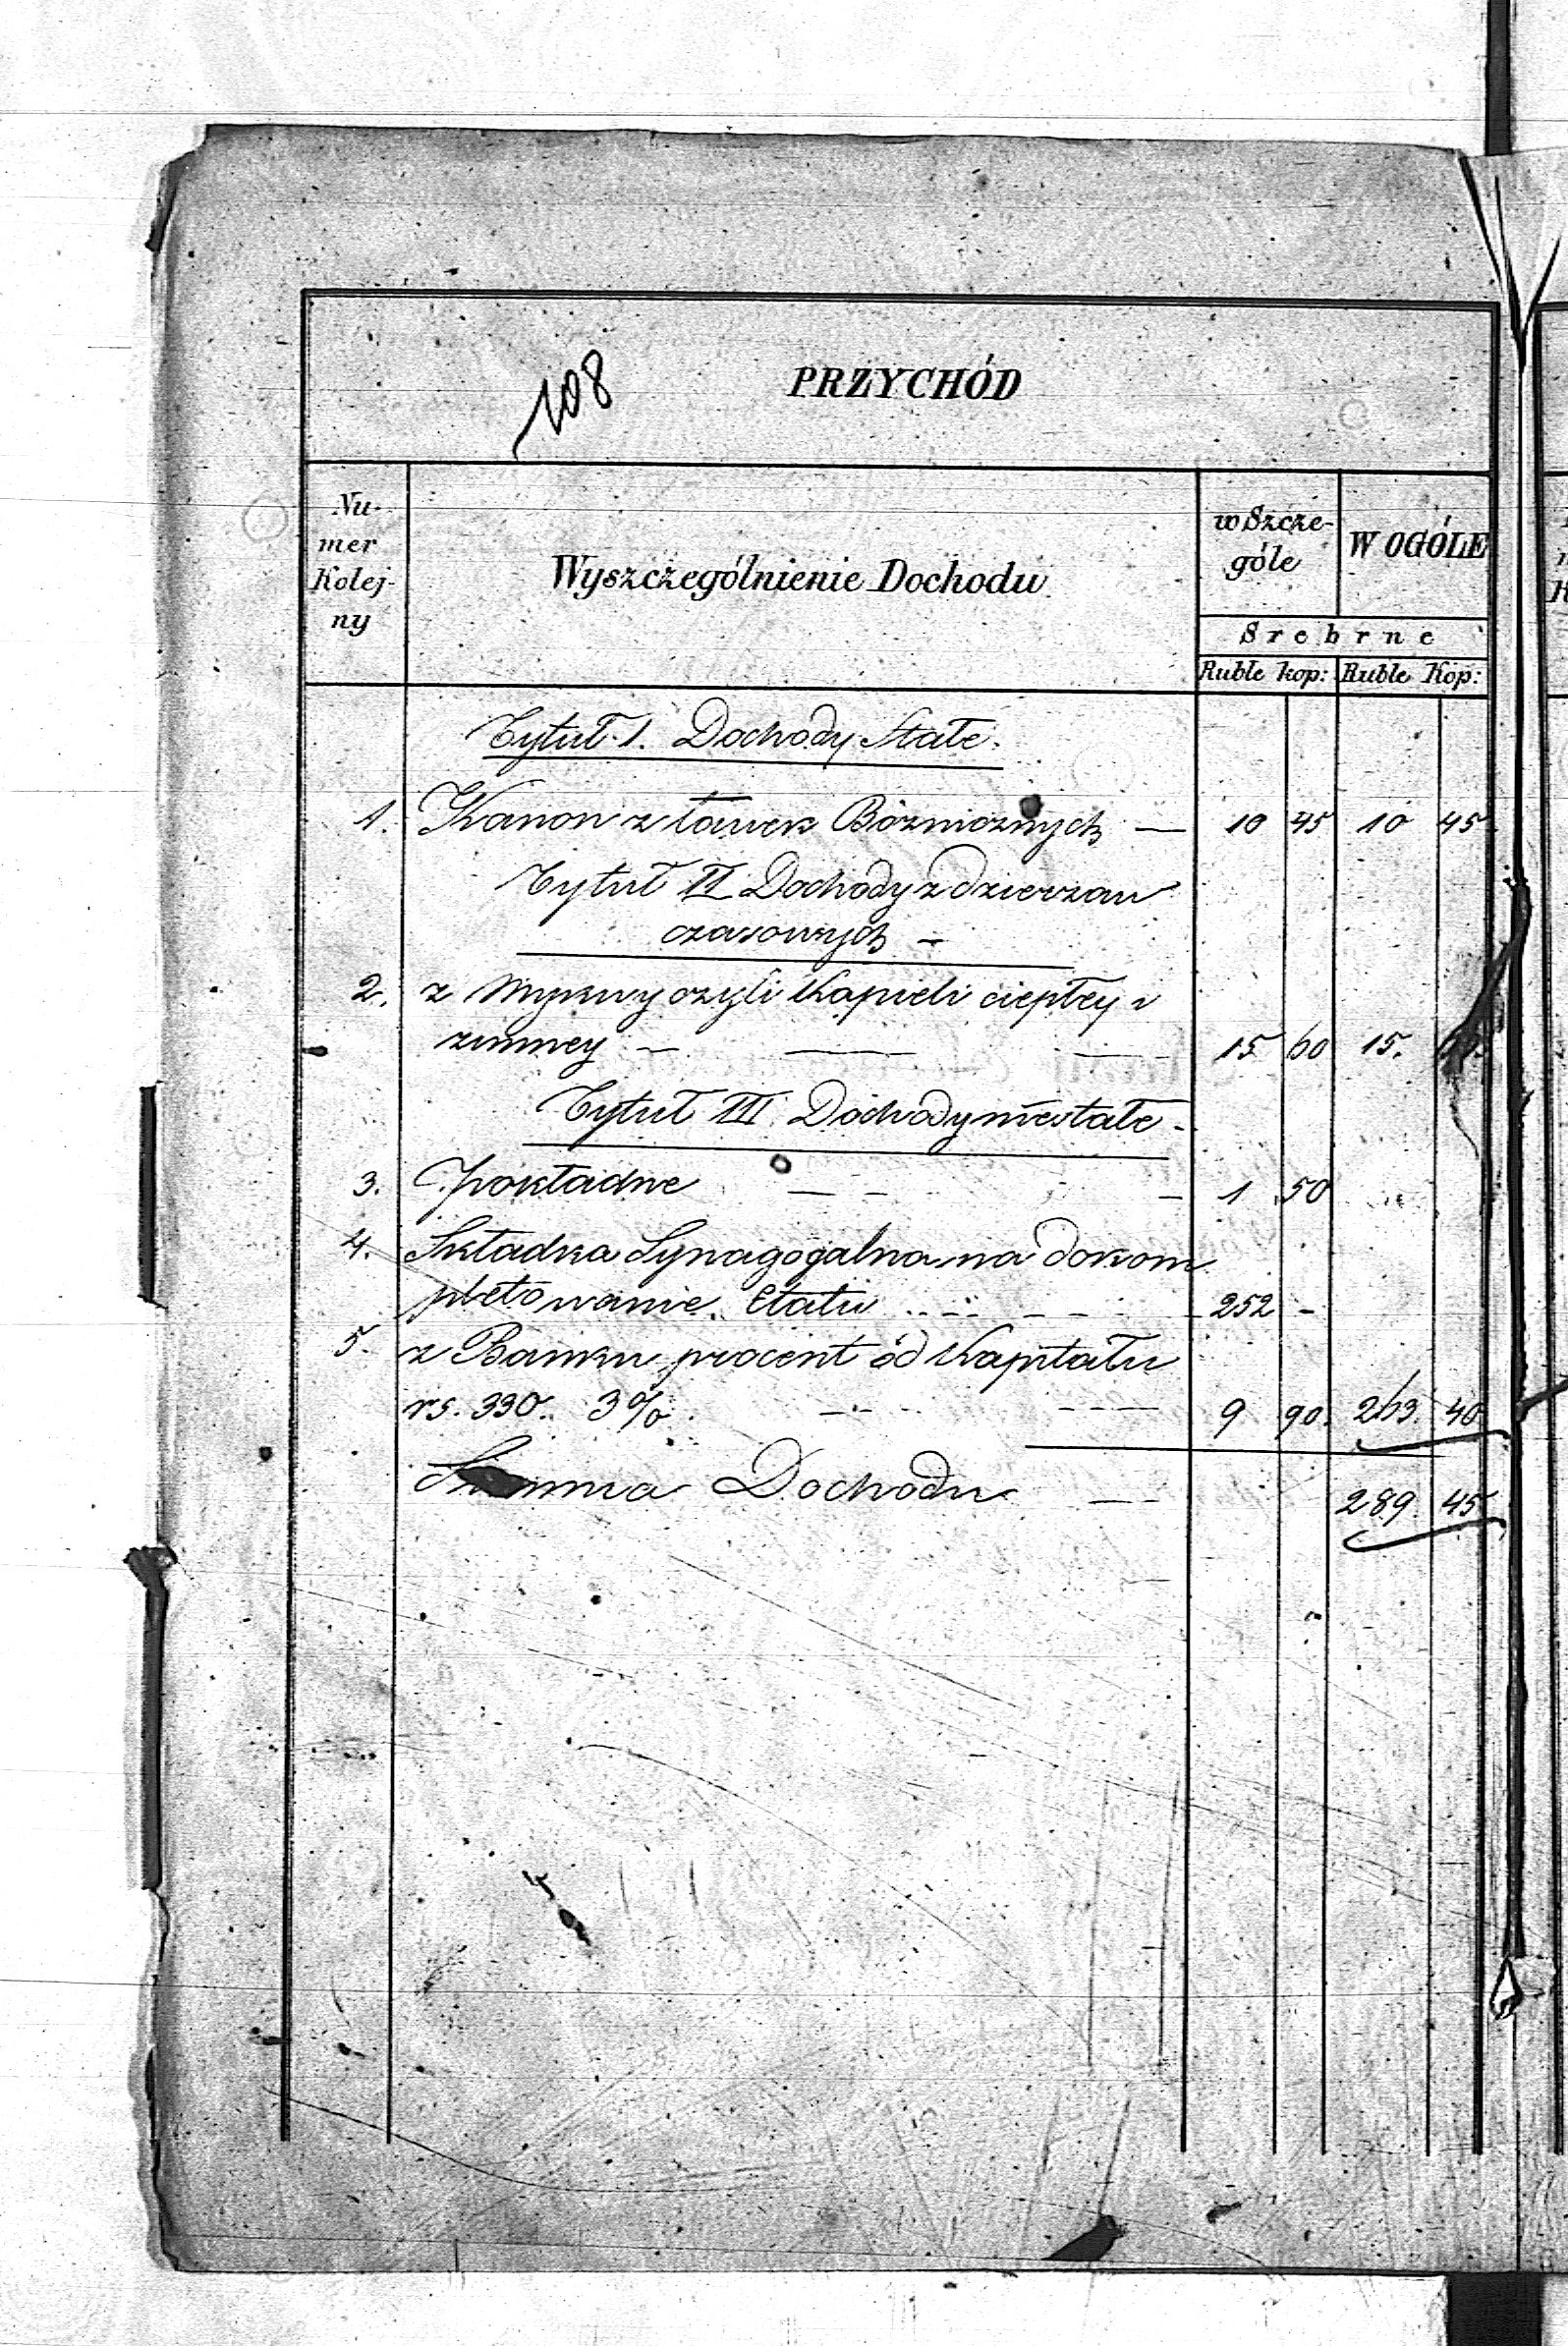 108
PRZYCHÓD
Nu-
mer
Kolej-
ny
Wyszczególnienie Dochodu.
w Szcze-
góle
W OGÓLE
Srebrne
Ruble kop: Ruble Kop:
Tytuł I. Dochody Stałe.
1. Kanon z ławek Bóżnicznych — 10 45 10 45
Tytuł II Dochody z dzierzaw
czasowych —
2. z Mykwy czyli Kąpieli ciepłey i
zimney — — — 15 60 15.
Tytuł III. Dochody niestałe -
3. Pokładne — — — 1 50
4. Składka Synagogalna na dokom
pletowanie Etatu - - - 252 -
5. z Banku procent od Kapitału
rs. 330. 3% - - - 9 90. 263. 40
Summa Dochodu — 289. 45